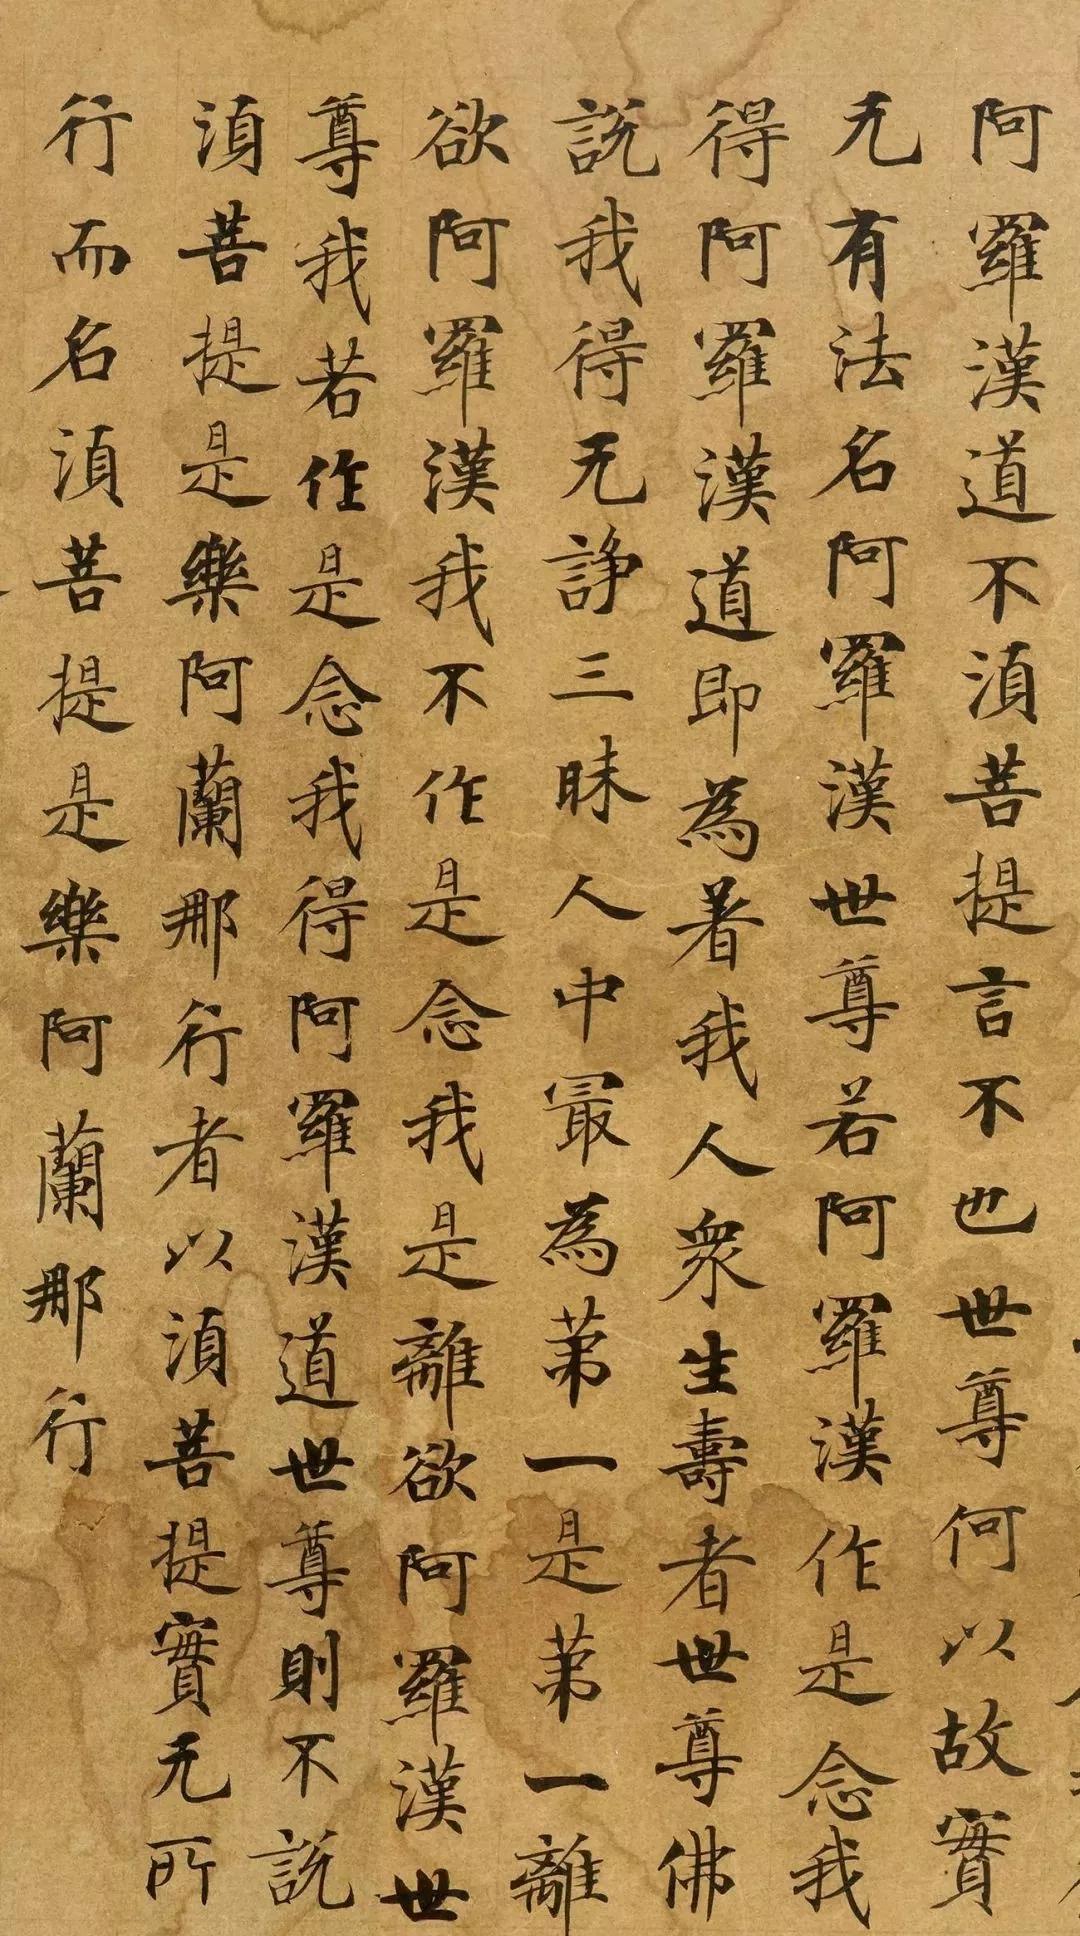 阿羅漢道不湏菩提言不也世尊何以故實
无有法名阿羅漢世尊若阿羅漢作是念我
得阿羅漢道即為著我人衆生壽者世尊佛
說我得无諍三昧人中㝡為苐一是苐一離
欲阿羅漢我不作是念我是離欲阿羅漢世
尊我若作是念我得阿羅漢道世尊則不說
湏菩提是樂阿蘭那行者以湏菩提實无所
行而名湏菩提是樂阿蘭那行